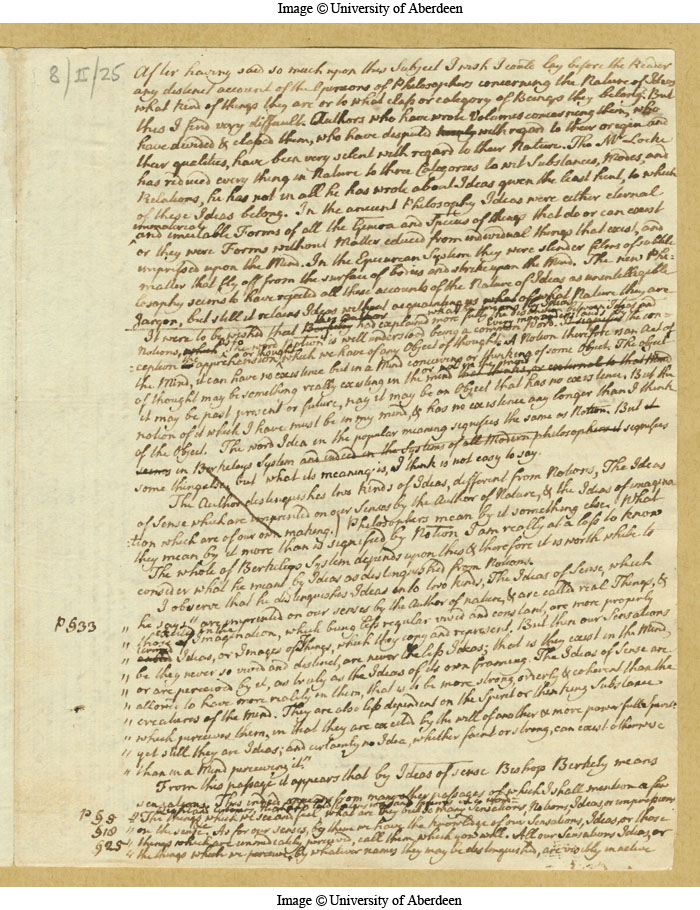 Image © University of Aberdeen
8/II/25
After having said so much upon this Subject I wish I could lay before the Reader
any distinct account of the Opinions of Philosophers concerning the Nature of Ideas
what kind of things they are or to what class or category of Beings they belong. But
this I find very difficult. Authors who have wrote Volumes concerning them, who
have divided & classed them, who have disputed with regard to their origin and
their qualities, have been very silent with regard to their Nature. Tho Mr Locke
has reduced every thing in Nature to three Categories to wit Substances, Modes, and
Relations, he has not in all he has wrote about Ideas given the least hint, to which
of these Ideas belong. In the ancient Philosophy Ideas were either eternal
immaterial
and immutable Forms of all the Genera and Species of things that do or can exist
or they were Forms without Matter educed from individual things that exist, and
impressed upon the Mind. In the Epicurean System they were slender films of subtile
matter that fly off from the surface of bodies and strike upon the Mind. The new Phi-
losophy seems to have rejected all these accounts of the Nature of Ideas as unintelligible
Jargon, but still it retains Ideas without acquainting us what Nature they are
It were to be wished that this Author had explained more fully
Notions, the word is well understood being a common word. the con-
ception or apprehension or thought which we have of any Object of thought. A Notion therefore is an Act of
the Mind, it can have no existence but in a Mind conceiving or thinking of some Object. The object
of thought may be something really existing in the mind or not in the mind
it may be past present or future, nay it may be an Object that has no existence. But the
notion of it which I have must be in my mind, & has no existence any longer than I think
of the Object. The word Idea in the popular meaning signifies the same as Notion. But it
in Berkeleys System and indeed in the Systems of all Modern philosophers it signifies
some thing else but what its meaning is, I think is not easy to say.
The Author distinguishes two kinds of Ideas, different from Notions, The Ideas
of Sense which are imprinted on our Senses by the Author of Nature, & the Ideas of imagina
:tion which are of our own making. Philosophers mean by it something else. What
they mean by it more than is signified by Notion I am really at a loss to know
The whole of Berkeleys System depends upon this & therefore it is worth while to
consider what he meant by Ideas as distinguished from Notions.
I observe that he distinguishes Ideas into two kinds, The Ideas of Sense, which
P §33
" he says "are imprinted on our senses by the Author of nature, & are called real Things, &
" those excited in the Imagination, which being less regular vivid and constant, are more properly
" termed Ideas, or Images of Things, which they copy and represent. But then our Sensations
" be they never so vivid and distinct, are nevertheless Ideas; that is they exist in the Mind,
" or are perceived by it, as truly as the Ideas of its own framing. The Ideas of Sense are
" allowed to have more reality in them, that is, to be more strong, orderly & coherent than the
" creatures of the Mind. They are also less dependent on the Spirit or thinking Substance
" which perceives them, in that they are excited by the will of another & more powerfull Spirit:
" yet still they are Ideas; and certainly no Idea, whether faint or strong, can exist otherwise
" than in a Mind perceiving it."
From this passage it appears that by Ideas of sense Bishop Berkely means
sensations. This indeed appears from many other passages of which I shall mention a few
P §5
" The things which we see and feel what are they but so many Sensations, Notions, Ideas, or impressions
§18
" on the sense. As for our Senses, by them we have the knowledge of our Sensations, Ideas, or those
§25
" things which are immediately perceived, call them what you will. All our Sensations Ideas, or
" the things which we perceive, by whatever names they may be distinguished, are visibly inactive
Image © University of Aberdeen